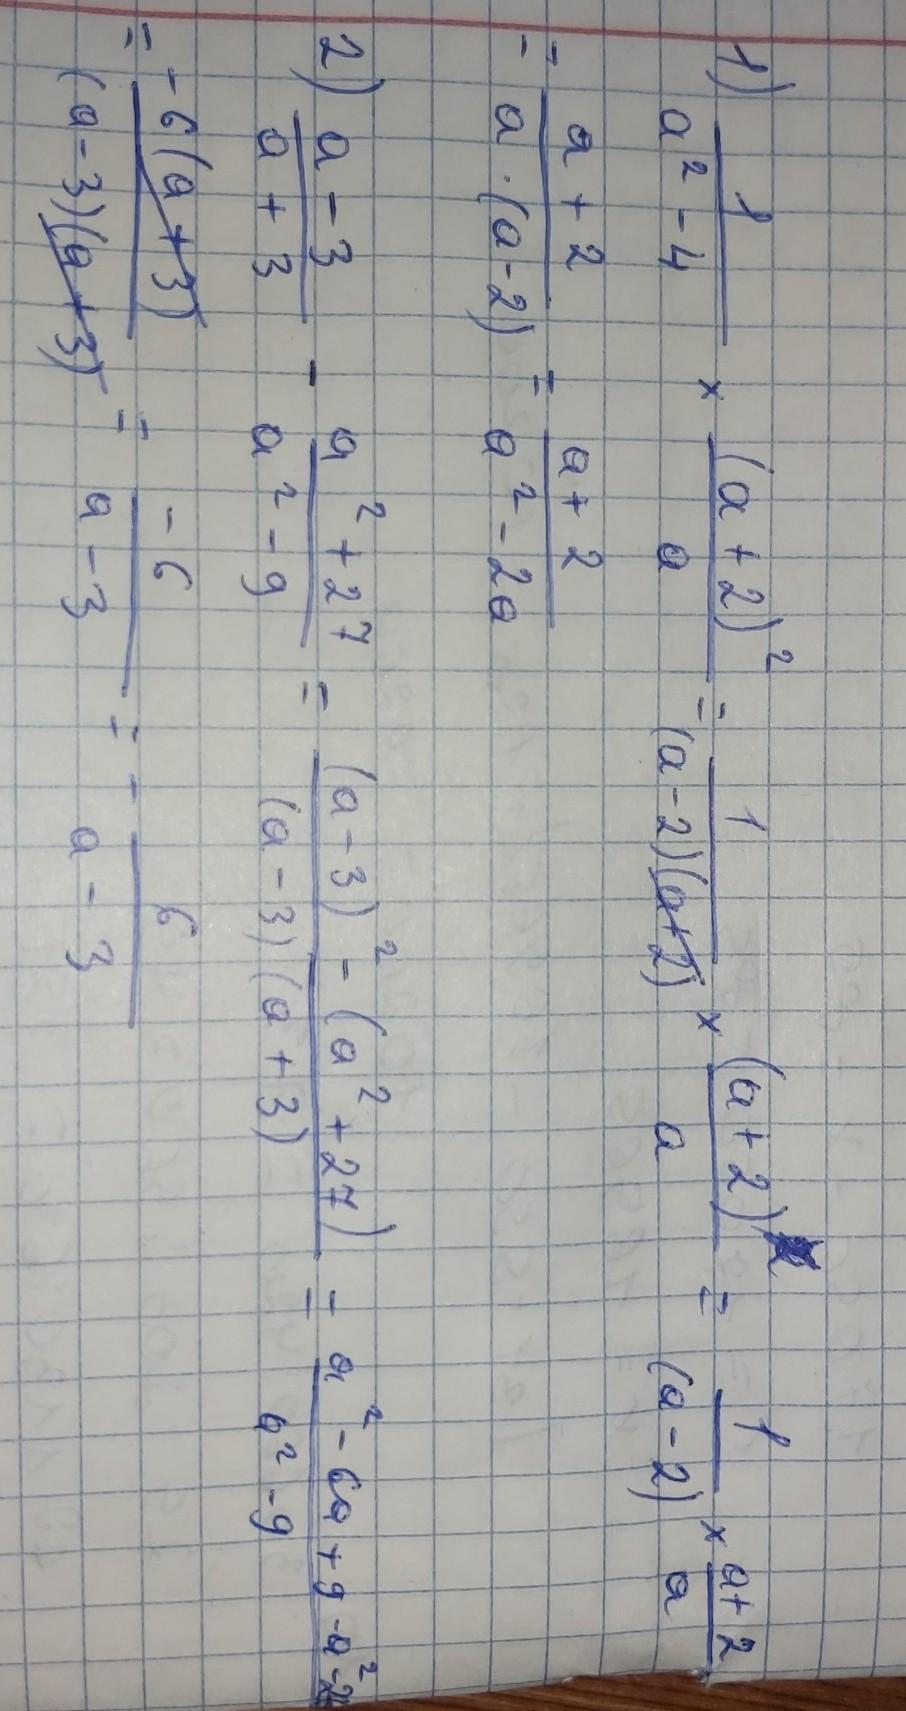 1) 1/(a² - 4) × (a + 2)²/a = 1/((a - 2)(a + 2)) × (a + 2)/a = 1/(a - 2) × (a + 2)/a
= (a + 2)/(a · (a - 2)) = (a + 2)/(a² - 2a)
2) (a - 3)/(a + 3) - (a² + 27)/(a² - 9) = ((a - 3)² - (a² + 27))/((a - 3)(a + 3)) = (a² - 6a + 9 - a² - 2)/(a² - 9)
= -6(a + 3)/((a - 3)(a + 3)) = -6/(a - 3) = - 6/(a - 3)